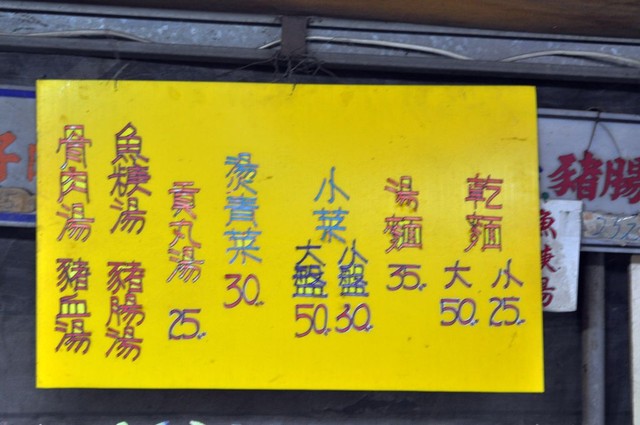 乾麵
大 50.
小 25.
湯麵 35.
小菜
大盤 50.
小盤 30.
燙青菜 30.
貢丸湯 25.
魚羹湯
豬腸湯
骨肉湯
豬血湯
豬腸
魚羹湯